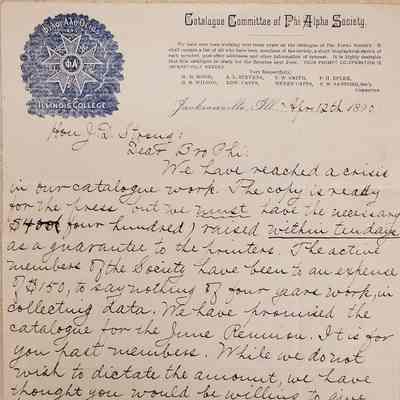 Catalogue Committee of Phi Alpha Society.
PHI ALPHA
ΦΑ
ILLINOIS COLLEGE
We have now been working four years upon the catalogue of Phi Alpha Society. It
shall contain a list of all who have been members of the society, a short biographical sketch of
each member, post-office addresses and other information of interest. It is highly desirable
that this catalogue be ready for the Reunion next June. YOUR PROMPT CO-OPERATION IS
EARNESTLY DESIRED.
Very Respectfully,
Committee.
Jacksonville, Ill., Apr 12th 1890
Hon J. D. Strong:
Dear Bro Phi:
We have reached a crisis
in our catalogue work. The copy is ready
for the press but we must have the necessary
$400 (four hundred) raised within ten days
as a guarantee to the printers. The active
members of the Society have been to an expense
of $150, to say nothing of four years work, in
collecting data. We have promised the
catalogue for the June Reunion. It is for
you past members. While we do not
wish to dictate the amount, we have
thought you would be willing to give